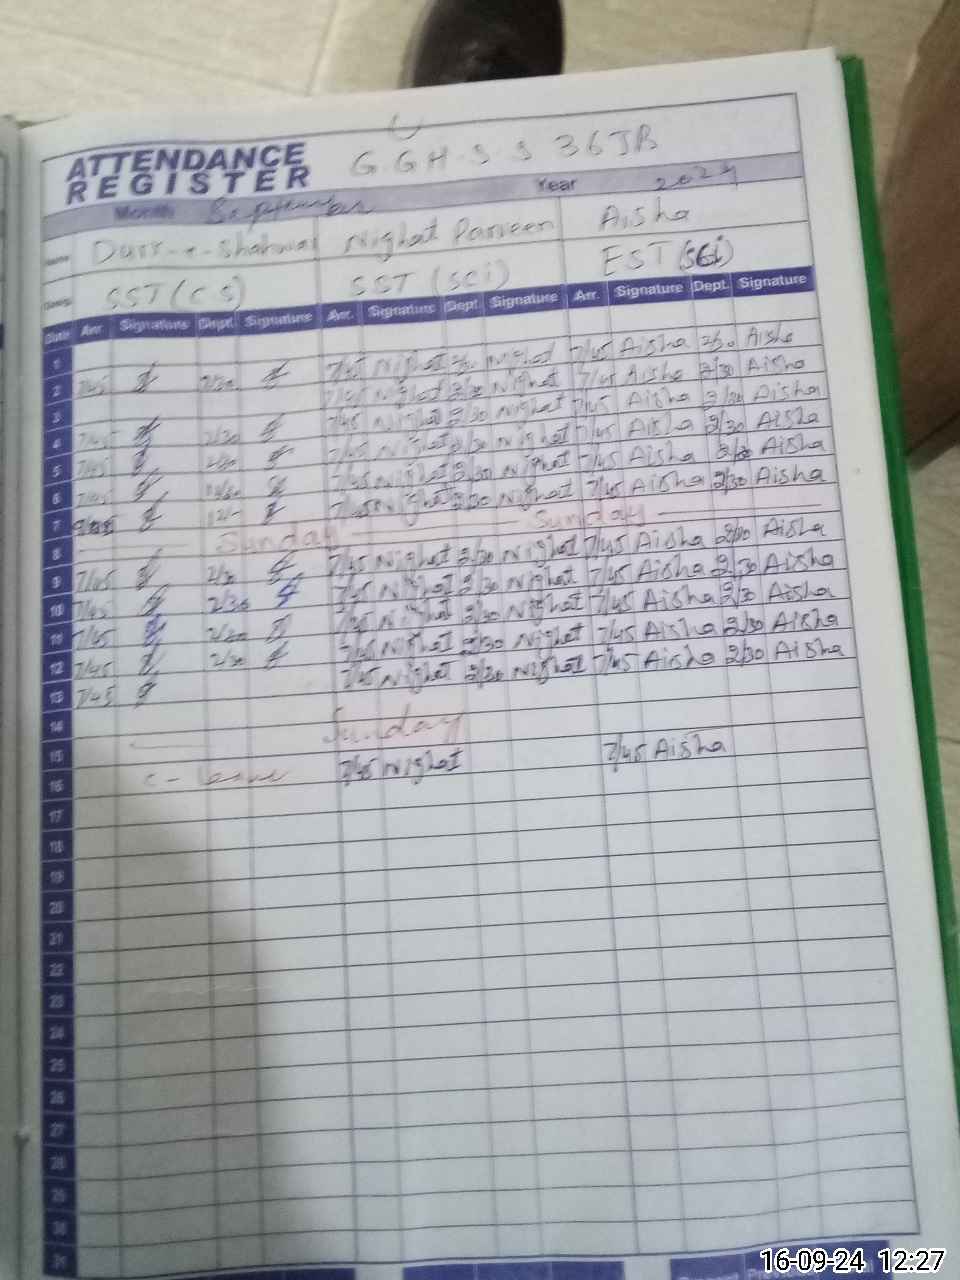 ATTENDANCE REGISTER G.G.H.S.S 36JB
Month September Year 2024
Name Durr-e-Shahwar Nighat Parveen Aisha
Desig. SST (CS) SST (Sci) EST (Sci)
Date Arr. Signature Dept. Signature Arr. Signature Dept. Signature Arr. Signature Dept. Signature
1
2 7/45 2/30 7/45 Nighat 2/30 Nighat 7/45 Aisha 2/30 Aisha
3 7/45 Nighat 2/30 Nighat 7/45 Aisha 2/30 Aisha
4 7/45 2/30 7/45 Nighat 2/30 Nighat 7/45 Aisha 2/30 Aisha
5 7/45 2/30 7/45 Nighat 2/30 Nighat 7/45 Aisha 2/30 Aisha
6 7/45 7/45 Nighat 2/30 Nighat 7/45 Aisha 2/30 Aisha
7 7/45 Nighat 2/30 Nighat 7/45 Aisha 2/30 Aisha
8 Sunday Sunday
9 7/45 2/30 7/45 Nighat 2/30 Nighat 7/45 Aisha 2/30 Aisha
10 7/45 2/30 7/45 Nighat 2/30 Nighat 7/45 Aisha 2/30 Aisha
11 7/45 2/30 7/45 Nighat 2/30 Nighat 7/45 Aisha 2/30 Aisha
12 7/45 2/30 7/45 Nighat 2/30 Nighat 7/45 Aisha 2/30 Aisha
13 7/45 7/45 Nighat 2/30 Nighat 7/45 Aisha 2/30 Aisha
14
15 Sunday
16 C-Leave 7/45 Nighat 7/45 Aisha
17
18
19
20
21
22
23
24
25
26
27
28
29
30
31
16-09-24 12:27